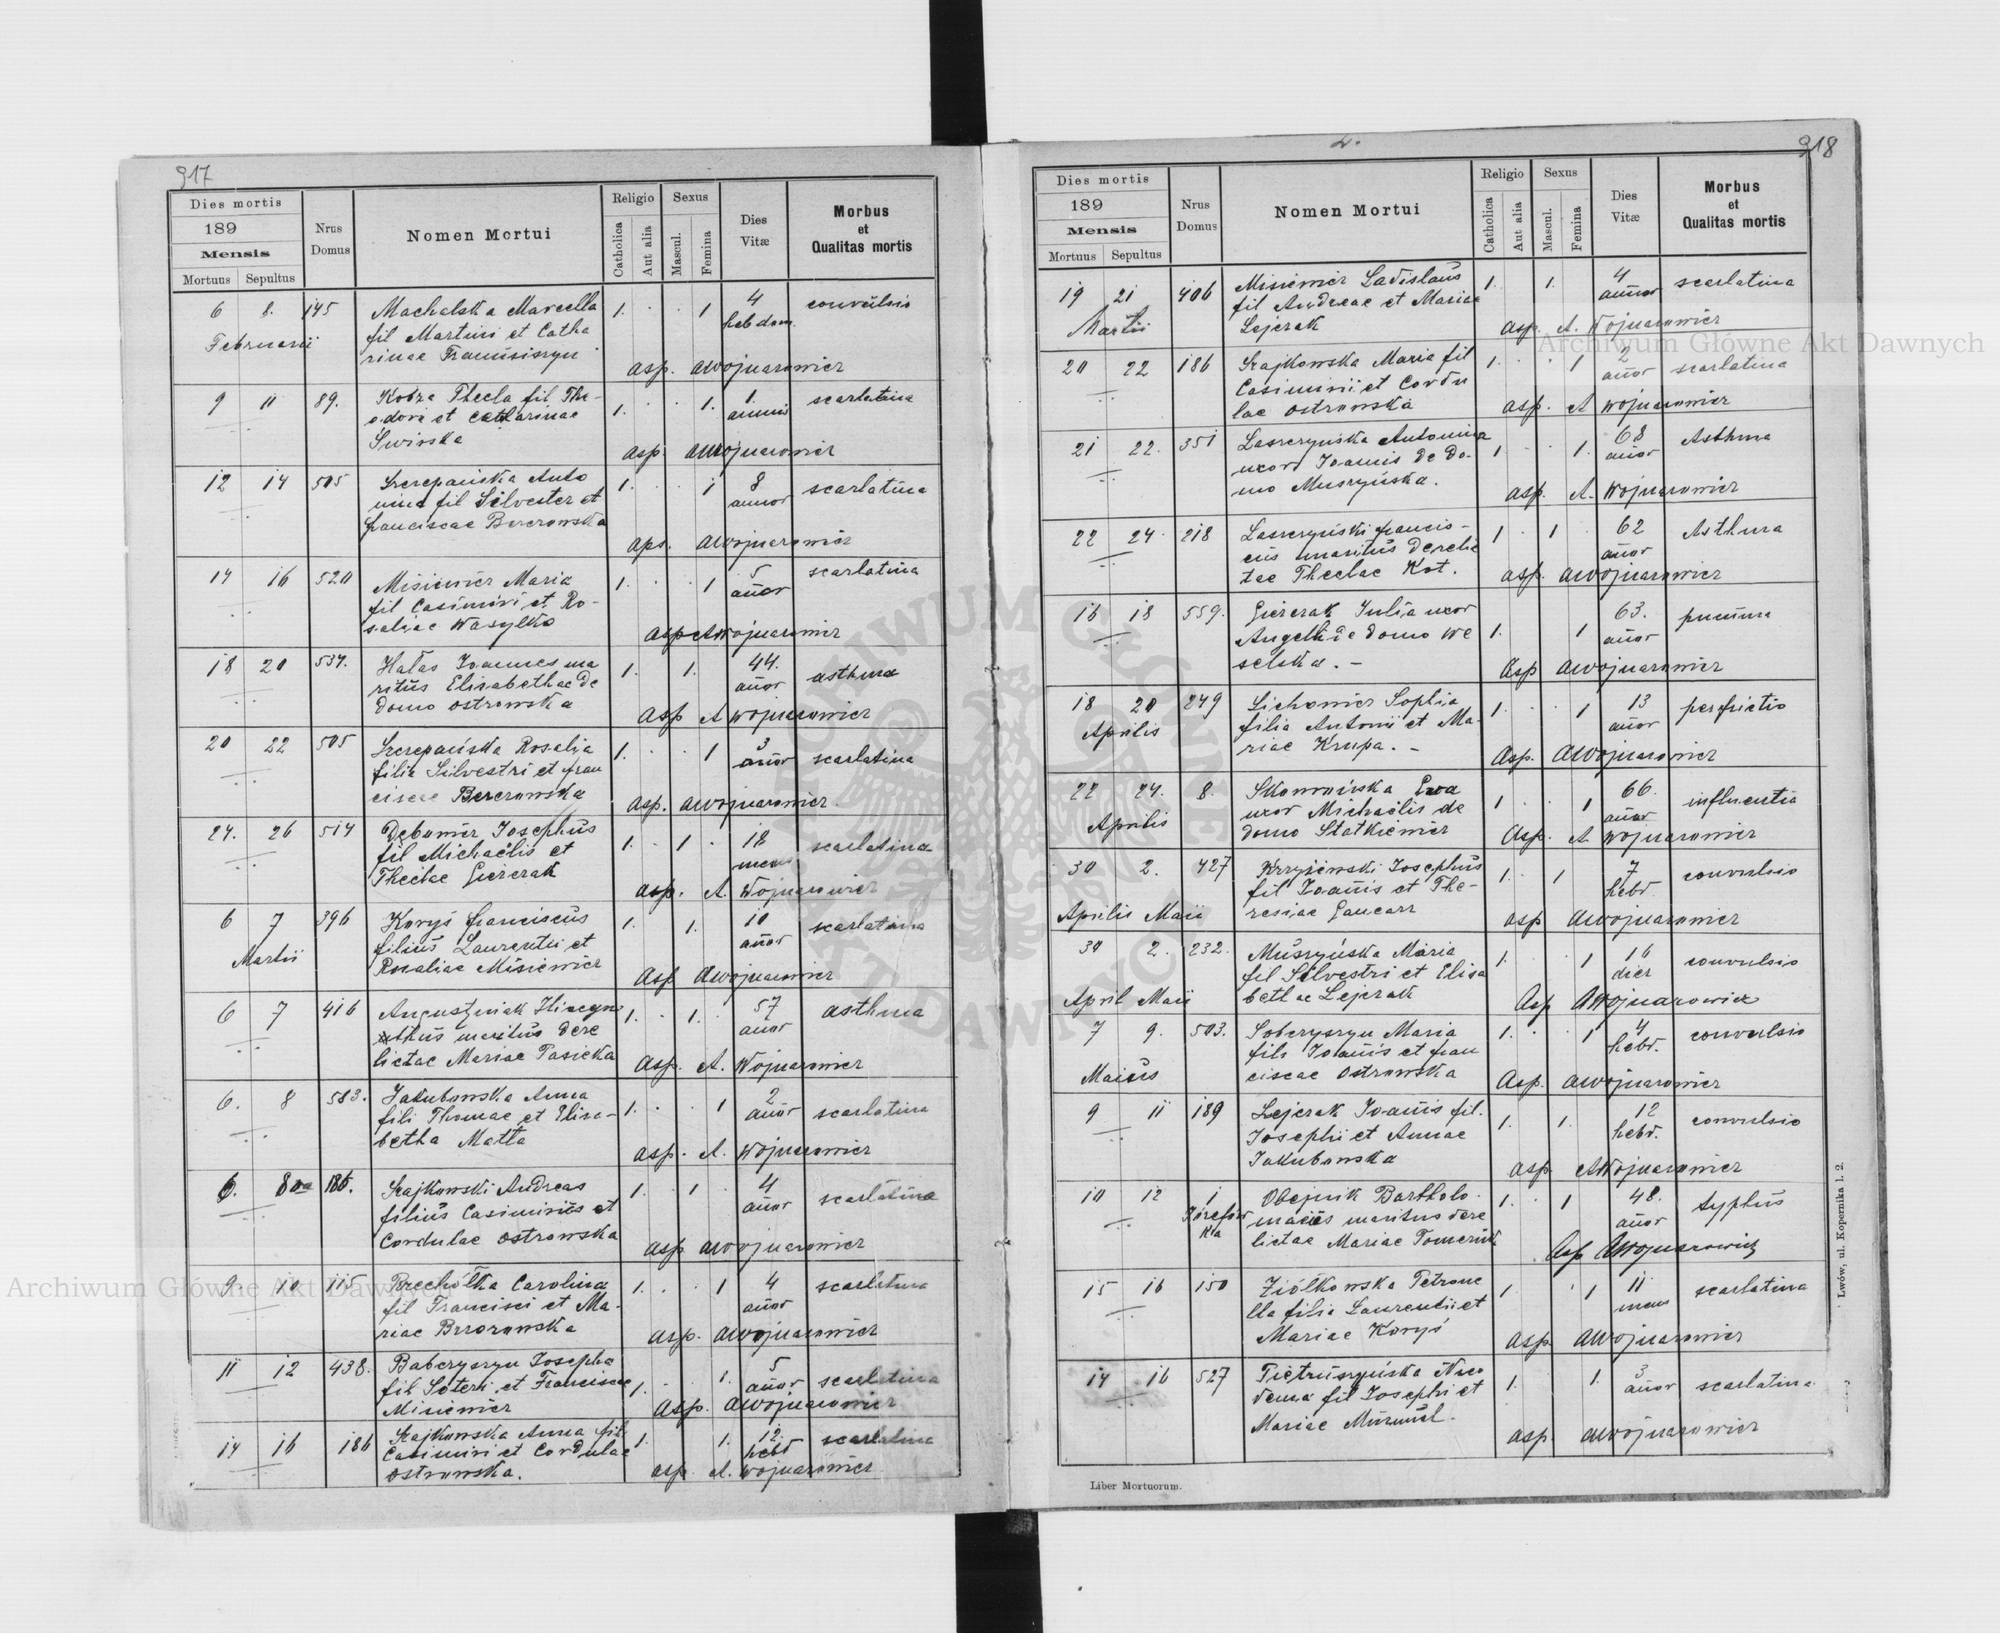 917
Dies mortis
189
Mensis
Mortuus Sepultus
Nrus Domus
Nomen Mortui
Religio
Catholica
Aut alia
Sexus
Mascul.
Femina
Dies Vitæ
Morbus et Qualitas mortis
6 8. 145 Machalska Marcella 1. 1 4 convulsio
Februarii fil Martini et Catha hebdom.
rinae Franciszyn asp. AWojnarowicz
9 11 89. Kobza Thecla fil The- 1. 1. 1. scarlatina
odori et Catharinae annus
Swirska asp. AWojnarowicz
12 14 505 Szczepańska Anto 1. 1 8 scarlatina
nina fil Silvester et annor
Franciscae Berezowska aps. AWojnarowicz
14 16 520 Misiewicz Maria 1. 1 5 scarlatina
fil Casimiri et Ro- añor
saliae Wasylko asp AWojnarowicz
18 20 534. Hałas Joannes ma 1. 1. 44. asthma
ritus Elisabethae de añor
domo Ostrowska asp A Wojnarowicz
20 22 505 Szczepańska Rosalia 1. 1 3 scarlatina
filia Silvestri et Fran añor
ciscae Berezowska asp. AWojnarowicz
24. 26 514 Debowicz Josephus 1. 1 18 scarlatina
fil Michaëlis et mens
Theclae Gierczak asp. A. Wojnarowicz
6 7 396 Koryś Franciscus 1. 1. 10 scarlatina
Martii filius Laurentii et añor
Rosaliae Misiewicz asp AWojnarowicz
6 7 416 Augustyniak Hiacyn 1. 1. 57 asthma
thus maritus dere añor
lictae Mariae Pasicka asp. A. Wojnarowicz
6. 8 583. Jakubowska Anna 1. 1 2 scarlatina
fili Thomae et Elisa- añor
betha Matła asp. A. Wojnarowicz
6. 8 186. Szajkowski Andreas 1. 1 4 scarlatina
filius Casimirüs et añor
Cordulae Ostrowska asp AWojnarowicz
9. 10 115 Brechółka Carolina 1. 1 4 scarlatina
fil Francisci et Ma- añor
riae Brzozowska asp. AWojnarowicz
11 12 438. Babczyszyn Josepha 1. 1. 5 scarlatina
fil Soteri et Franciscae añor
Misiewicz asp. AWojnarowicz
14 16 186 Szajkowska Anna fil. 1. 1. 12. scarlatina
Casimiri et Cordulae hebd
Ostrowska. asp A. Wojnarowicz
2.
918
Dies mortis
189
Mensis
Mortuus Sepultus
Nrus Domus
Nomen Mortui
Religio
Catholica
Aut alia
Sexus
Mascul.
Femina
Dies Vitæ
Morbus et Qualitas mortis
19 21 406 Misiewicz Ladislaus 1. 1. 4 scarlatina
Martii fil Andreae et Mariae annor
Lejczak asp. A. Wojnarowicz
20 22 186 Szajkowska Maria fil 1. 1 2 scarlatina
Casimirii et Cordu añor
lae Ostrowska asp. A Wojnarowicz
21 22. 351 Laszczyńska Antonina 1 1. 68 Asthma
uxor Joannis de do- añor
mo Muszyńska. asp. A. Wojnarowicz
22 24. 218 Laszczyński Francis- 1 1 62 Asthma
cus maritus derelic añor
tae Theclae Kot. asp. AWojnarowicz
16 18 559. Gierczak Julia uxor 1. 1 63.
Angeli de domo We añor
selska. - Asp AWojnarowicz
18 20 249 Lichowicz Sophia 1. 1 13 perfrictio
Aprilis filia Antonii et Ma- añor
riae Krupa. - Asp. AWojnarowicz
22 24. 8. Skowrońska Ewa 1 1 66. influentia
Aprilis uxor Michaëlis de añor
domo Statkiewicz asp. A. Wojnarowicz
30 2. 427 Krzyżewski Josephus 1. 1 7 convulsio
fil Joañis et The- hebd.
Aprilis Maii resiae Gancarz asp AWojnarowicz
30 2. 232. Muszyńska Maria 1. 1 16 convulsio
fil Silvestri et Elisa dier
April Maii bethae Lejczak Asp AWojnarowicz
7 9. 503. Sobczyszyn Maria 1. 1 4 convulsio
filia Joañis et Fran hebd.
Maiüs ciscae Ostrowska Asp. AWojnarowicz
9 11 189 Lejczak Joañis fil. 1. 1. 12 convulsio
Josephi et Annae hebd.
Jakubowska asp AWojnarowicz
10 12 1 Obejnik Bartholo- 1. 1 48. typhus
Józefów maeus maritus dere añor
ka lictae Mariae Asp AWojnarowicz
15 16 150 Ziółkowska Petrone 1 1 11 scarlatina
lla filia Laurentii et mens
Mariae Koryś asp AWojnarowicz
14 16 527 Pietruszyńska Nico 1. 1. 3 scarlatina
dema fil Josephi et añor
Mariae asp. AWojnarowicz
Liber Mortuorum.
Lwów, ul. Kopernika l. 2.
Archiwum Główne Akt Dawnych
Archiwum Główne Akt Dawnych
ARCHIWUM GŁÓWNE AKT DAWNYCH